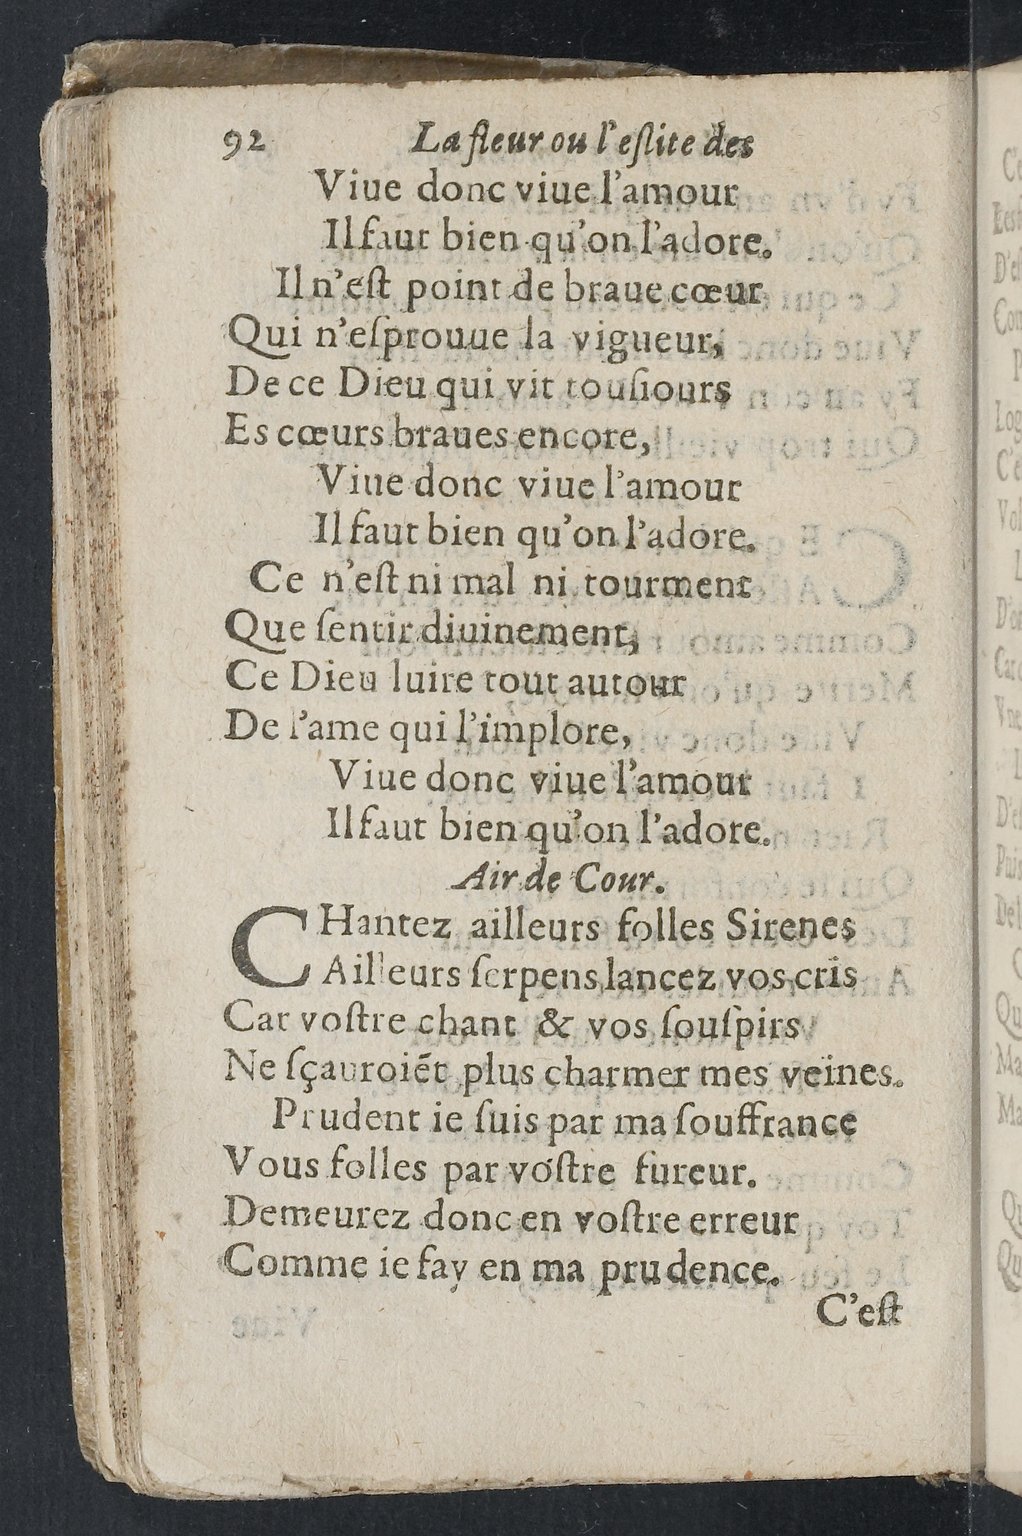 92 La fleur ou l'eſlite des
Viue donc viue l'amour
Il faut bien qu'on l'adore.
Il n'eſt point de braue cœur
Qui n'eſprouue la vigueur,
De ce Dieu qui vit touſiours
Es cœurs braues encore,
Viue donc viue l'amour
Il faut bien qu'on l'adore.
Ce n'eſt ni mal ni tourment
Que ſentir diuinement,
Ce Dieu luire tout autour
De l'ame qui l'implore,
Viue donc viue l'amour
Il faut bien qu'on l'adore.
Air de Cour.
CHantez ailleurs folles Sirenes
Ailleurs ſerpens lancez vos cris
Car voſtre chant & vos ſouſpirs
Ne ſçauroiẽt plus charmer mes veines.
Prudent ie ſuis par ma ſouffrance
Vous folles par voſtre fureur.
Demeurez donc en voſtre erreur
Comme ie fay en ma prudence.
C'eſt